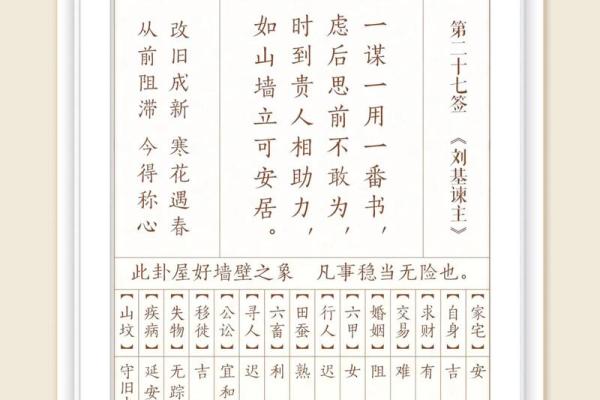 第二十七签 《刘基谏主》
一谋一用一番书，
虑后思前不敢为，
时到贵人相助力，
如山墙立可安居。
改旧成新 寒花遇春
从前阻滞 今得称心
此卦屋好墙壁之象 凡事稳当无险也。
【家宅】安
【自身】吉
【求财】有
【交易】难
【婚姻】阻
【六甲】女
【行人】迟
【田蚕】熟
【六畜】利
【寻人】迟
【公讼】宜和
【移徙】吉
【失物】无踪
【疾病】延安
【山坟】守旧